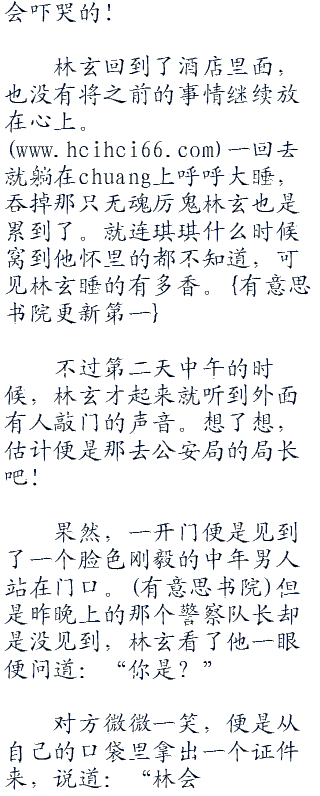 会吓哭的！
林玄回到了酒店里面，
也没有将之前的事情继续放
在心上。
(www.hcihci66.com)一回去
就躺在chuang上呼呼大睡，
吞掉那只无魂厉鬼林玄也是
累到了。就连琪琪什么时候
窝到他怀里的都不知道，可
见林玄睡的有多香。{有意思
书院更新第一}
不过第二天中午的时
候，林玄才起来就听到外面
有人敲门的声音。想了想，
估计便是那去公安局的局长
吧！
果然，一开门便是见到
了一个脸色刚毅的中年男人
站在门口。(有意思书院)但
是昨晚上的那个警察队长却
是没见到，林玄看了他一眼
便问道：“你是？”
对方微微一笑，便是从
自己的口袋里拿出一个证件
来，说道：“林会